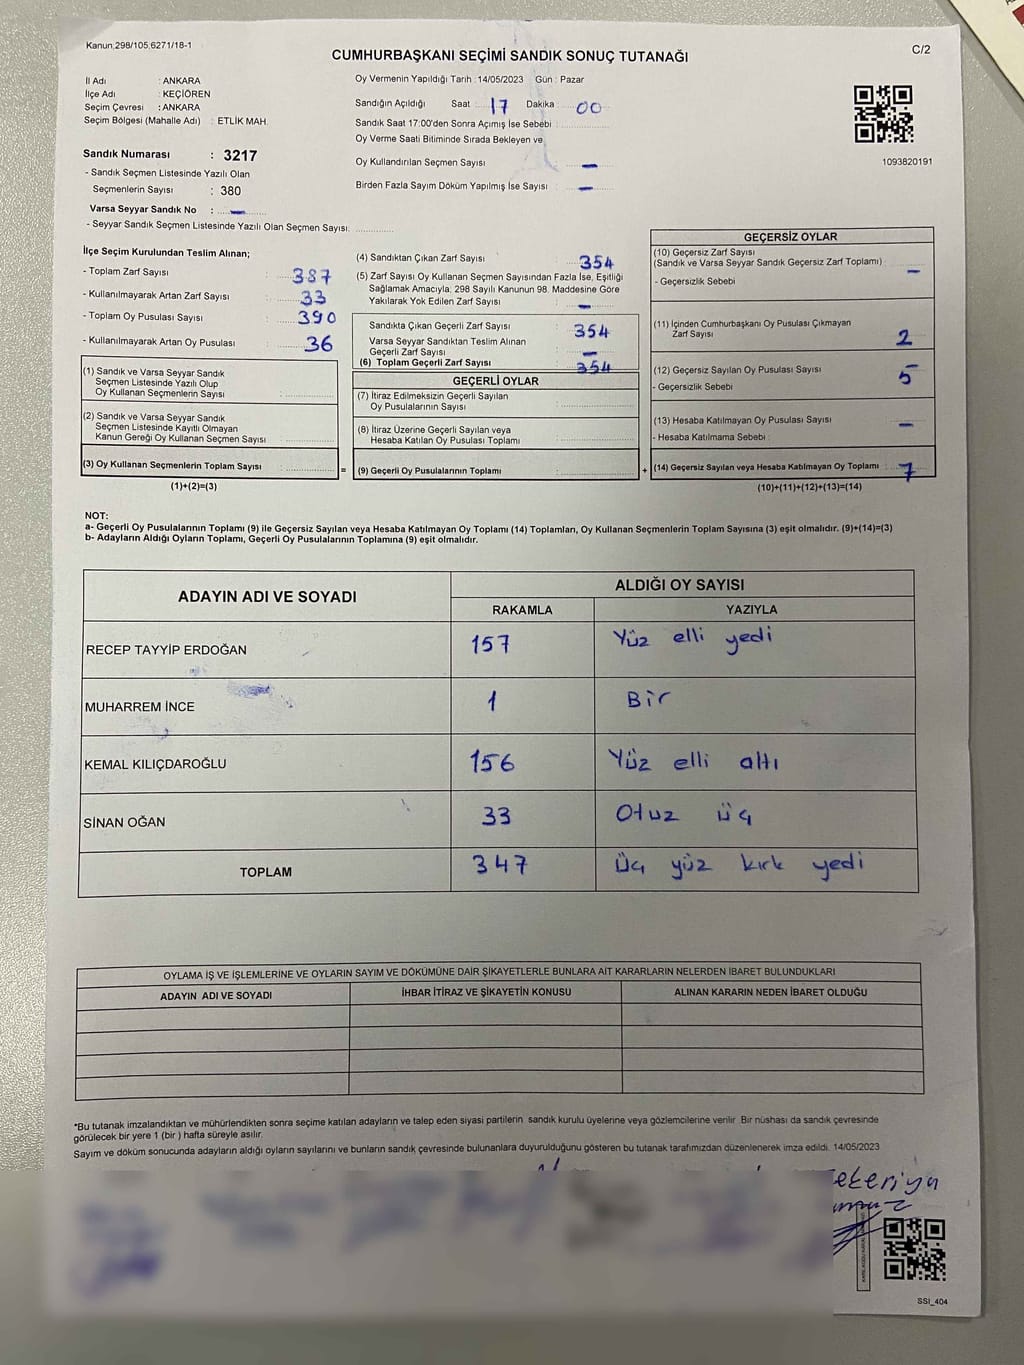 Kanun;298/105;6271/18-1
C/2
CUMHURBAŞKANI SEÇİMİ SANDIK SONUÇ TUTANAĞI
İl Adı : ANKARA
İlçe Adı : KEÇİÖREN
Seçim Çevresi : ANKARA
Seçim Bölgesi (Mahalle Adı) : ETLİK MAH.
Sandık Numarası : 3217
- Sandık Seçmen Listesinde Yazılı Olan
Seçmenlerin Sayısı : 380
Varsa Seyyar Sandık No : -
- Seyyar Sandık Seçmen Listesinde Yazılı Olan Seçmen Sayısı:
Oy Vermenin Yapıldığı Tarih : 14/05/2023 Gün : Pazar
Sandığın Açıldığı Saat : 17 Dakika : 00
Sandık Saat 17:00'den Sonra Açımış İse Sebebi :
Oy Verme Saati Bitiminde Sırada Bekleyen ve
Oy Kullandırılan Seçmen Sayısı : -
Birden Fazla Sayım Döküm Yapılmış İse Sayısı : -
1093820191
İlçe Seçim Kurulundan Teslim Alınan;
- Toplam Zarf Sayısı : 387
- Kullanılmayarak Artan Zarf Sayısı : 33
- Toplam Oy Pusulası Sayısı : 390
- Kullanılmayarak Artan Oy Pusulası : 36
(1) Sandık ve Varsa Seyyar Sandık
Seçmen Listesinde Yazılı Olup
Oy Kullanan Seçmenlerin Sayısı :
(2) Sandık ve Varsa Seyyar Sandık
Seçmen Listesinde Kayıtlı Olmayan
Kanun Gereği Oy Kullanan Seçmen Sayısı :
(3) Oy Kullanan Seçmenlerin Toplam Sayısı :
(1)+(2)=(3)
(4) Sandıktan Çıkan Zarf Sayısı : 354
(5) Zarf Sayısı Oy Kullanan Seçmen Sayısından Fazla İse, Eşitliği
Sağlamak Amacıyla; 298 Sayılı Kanunun 98. Maddesine Göre
Yakılarak Yok Edilen Zarf Sayısı : -
Sandıkta Çıkan Geçerli Zarf Sayısı : 354
Varsa Seyyar Sandıktan Teslim Alınan
Geçerli Zarf Sayısı : -
(6) Toplam Geçerli Zarf Sayısı : 354
GEÇERLİ OYLAR
(7) İtiraz Edilmeksizin Geçerli Sayılan
Oy Pusulalarının Sayısı :
(8) İtiraz Üzerine Geçerli Sayılan veya
Hesaba Katılan Oy Pusulası Toplamı :
=
(9) Geçerli Oy Pusulalarının Toplamı :
+
GEÇERSİZ OYLAR
(10) Geçersiz Zarf Sayısı
(Sandık ve Varsa Seyyar Sandık Geçersiz Zarf Toplamı) : -
- Geçersizlik Sebebi
(11) İçinden Cumhurbaşkanı Oy Pusulası Çıkmayan
Zarf Sayısı : 2
(12) Geçersiz Sayılan Oy Pusulası Sayısı : 5
- Geçersizlik Sebebi
(13) Hesaba Katılmayan Oy Pusulası Sayısı : -
- Hesaba Katılmama Sebebi
(14) Geçersiz Sayılan veya Hesaba Katılmayan Oy Toplamı : 7
(10)+(11)+(12)+(13)=(14)
NOT:
a- Geçerli Oy Pusulalarının Toplamı (9) ile Geçersiz Sayılan veya Hesaba Katılmayan Oy Toplamı (14) Toplamları, Oy Kullanan Seçmenlerin Toplam Sayısına (3) eşit olmalıdır. (9)+(14)=(3)
b- Adayların Aldığı Oyların Toplamı, Geçerli Oy Pusulalarının Toplamına (9) eşit olmalıdır.
ADAYIN ADI VE SOYADI
ALDIĞI OY SAYISI
RAKAMLA YAZIYLA
RECEP TAYYİP ERDOĞAN 157 Yüz elli yedi
MUHARREM İNCE 1 Bir
KEMAL KILIÇDAROĞLU 156 Yüz elli altı
SİNAN OĞAN 33 Otuz üç
TOPLAM 347 Üç yüz kırk yedi
OYLAMA İŞ VE İŞLEMLERİNE VE OYLARIN SAYIM VE DÖKÜMÜNE DAİR ŞİKAYETLERLE BUNLARA AİT KARARLARIN NELERDEN İBARET BULUNDUKLARI
ADAYIN ADI VE SOYADI İHBAR İTİRAZ VE ŞİKAYETİN KONUSU ALINAN KARARIN NEDEN İBARET OLDUĞU
*Bu tutanak imzalandıktan ve mühürlendikten sonra seçime katılan adayların ve talep eden siyasi partilerin sandık kurulu üyelerine veya gözlemcilerine verilir. Bir nüshası da sandık çevresinde
görülecek bir yere 1 (bir ) hafta süreyle asılır.
Sayım ve döküm sonucunda adayların aldığı oyların sayılarını ve bunların sandık çevresinde bulunanlara duyurulduğunu gösteren bu tutanak tarafımızdan düzenlenerek imza edildi. 14/05/2023
SSI_404